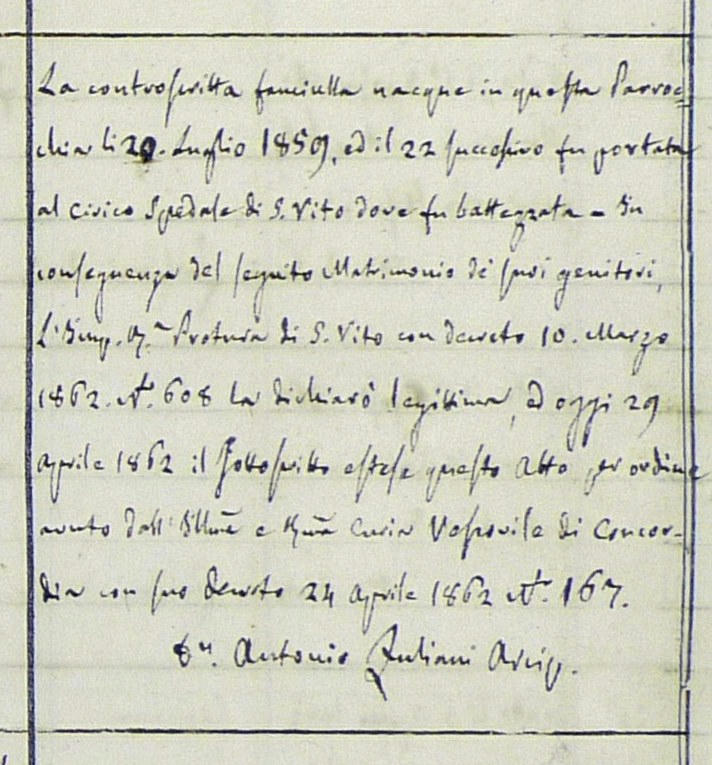 La controscritta fanciulla nacque in questa Parroc=
chia li 20. Luglio 1859, ed il 22 successivo fu portata
al Civico Spedale di S. Vito dove fu battezzata - In
conseguenza del seguito Matrimonio de' suoi genitori,
L'Imp. R.ª Pretura di S. Vito con decreto 10. Marzo
1862. N. 608 la dichiarò legittima, ed oggi 29
Aprile 1862 il Sottoscritto estese questo Atto per ordine
avuto dall' Illma e Rma Curia Vescovile di Concor-
dia con suo decreto 24 Aprile 1862 N. 167.
Antonio Juliani Arcip.